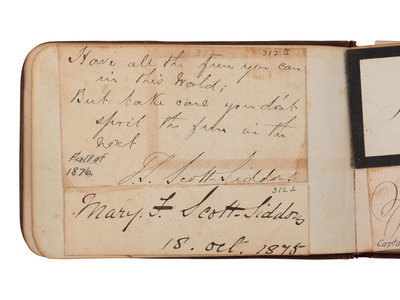 Have all the fun you can
312
in this World;
But take care you dont
spoil the fun in the
next
Fall of
1876
Scott-Siddons
312
Mary F Scott-Siddons
18. oct. 1875
Capta